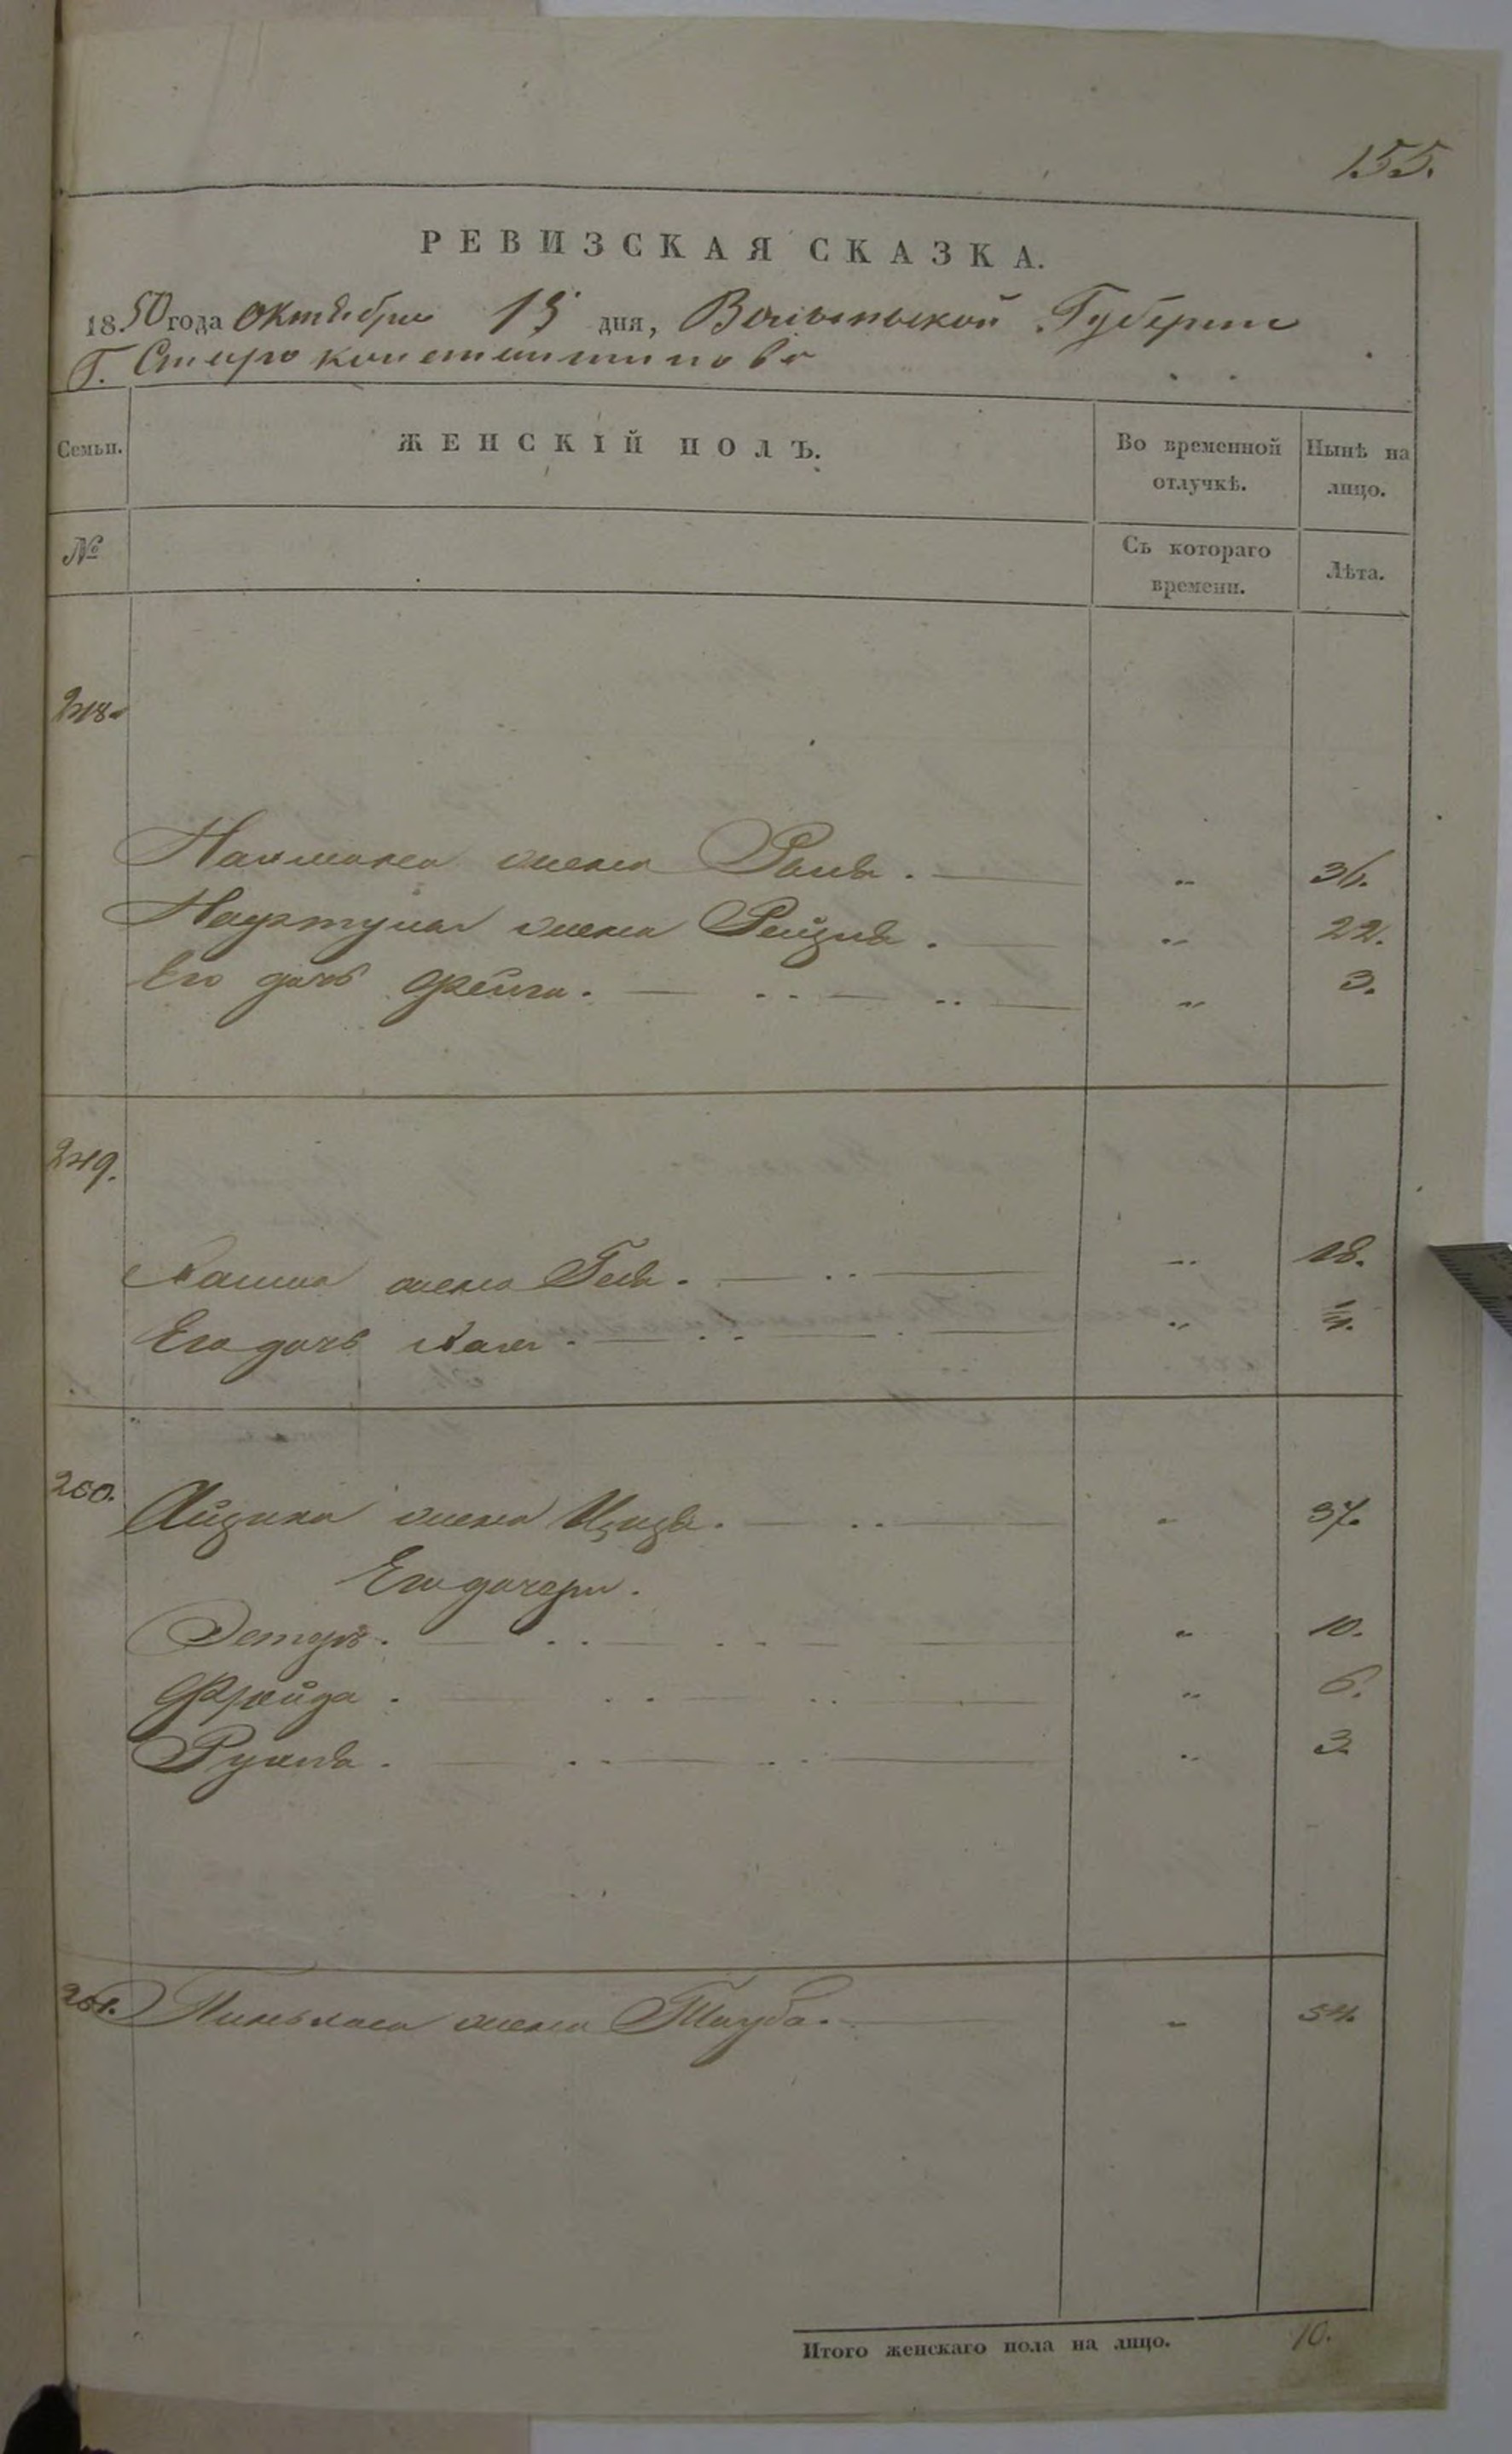 155.
РЕВИЗСКАЯ СКАЗКА.
1850 года Октября 15 дня, Волынской Губернии
Г. Староконстантинова
Семьи. ЖЕНСКІЙ ПОЛЪ. Во временной отлучкѣ. Нынѣ на лицо.
№ Съ котораго времени. Лѣта.
248.
жена „ 36.
жена Рейзля. „ 22.
Его дочь Фейга. „ 3.
249.
жена „ 18.
Его дочь „
250. Айзика жена „ 37.
Его дочери.
Эстеръ. „ 10.
Фрейда. „ 6.
Рухля. „ 3.
251. жена Тауба. „ 54.
Итого женскаго пола на лицо. 10.